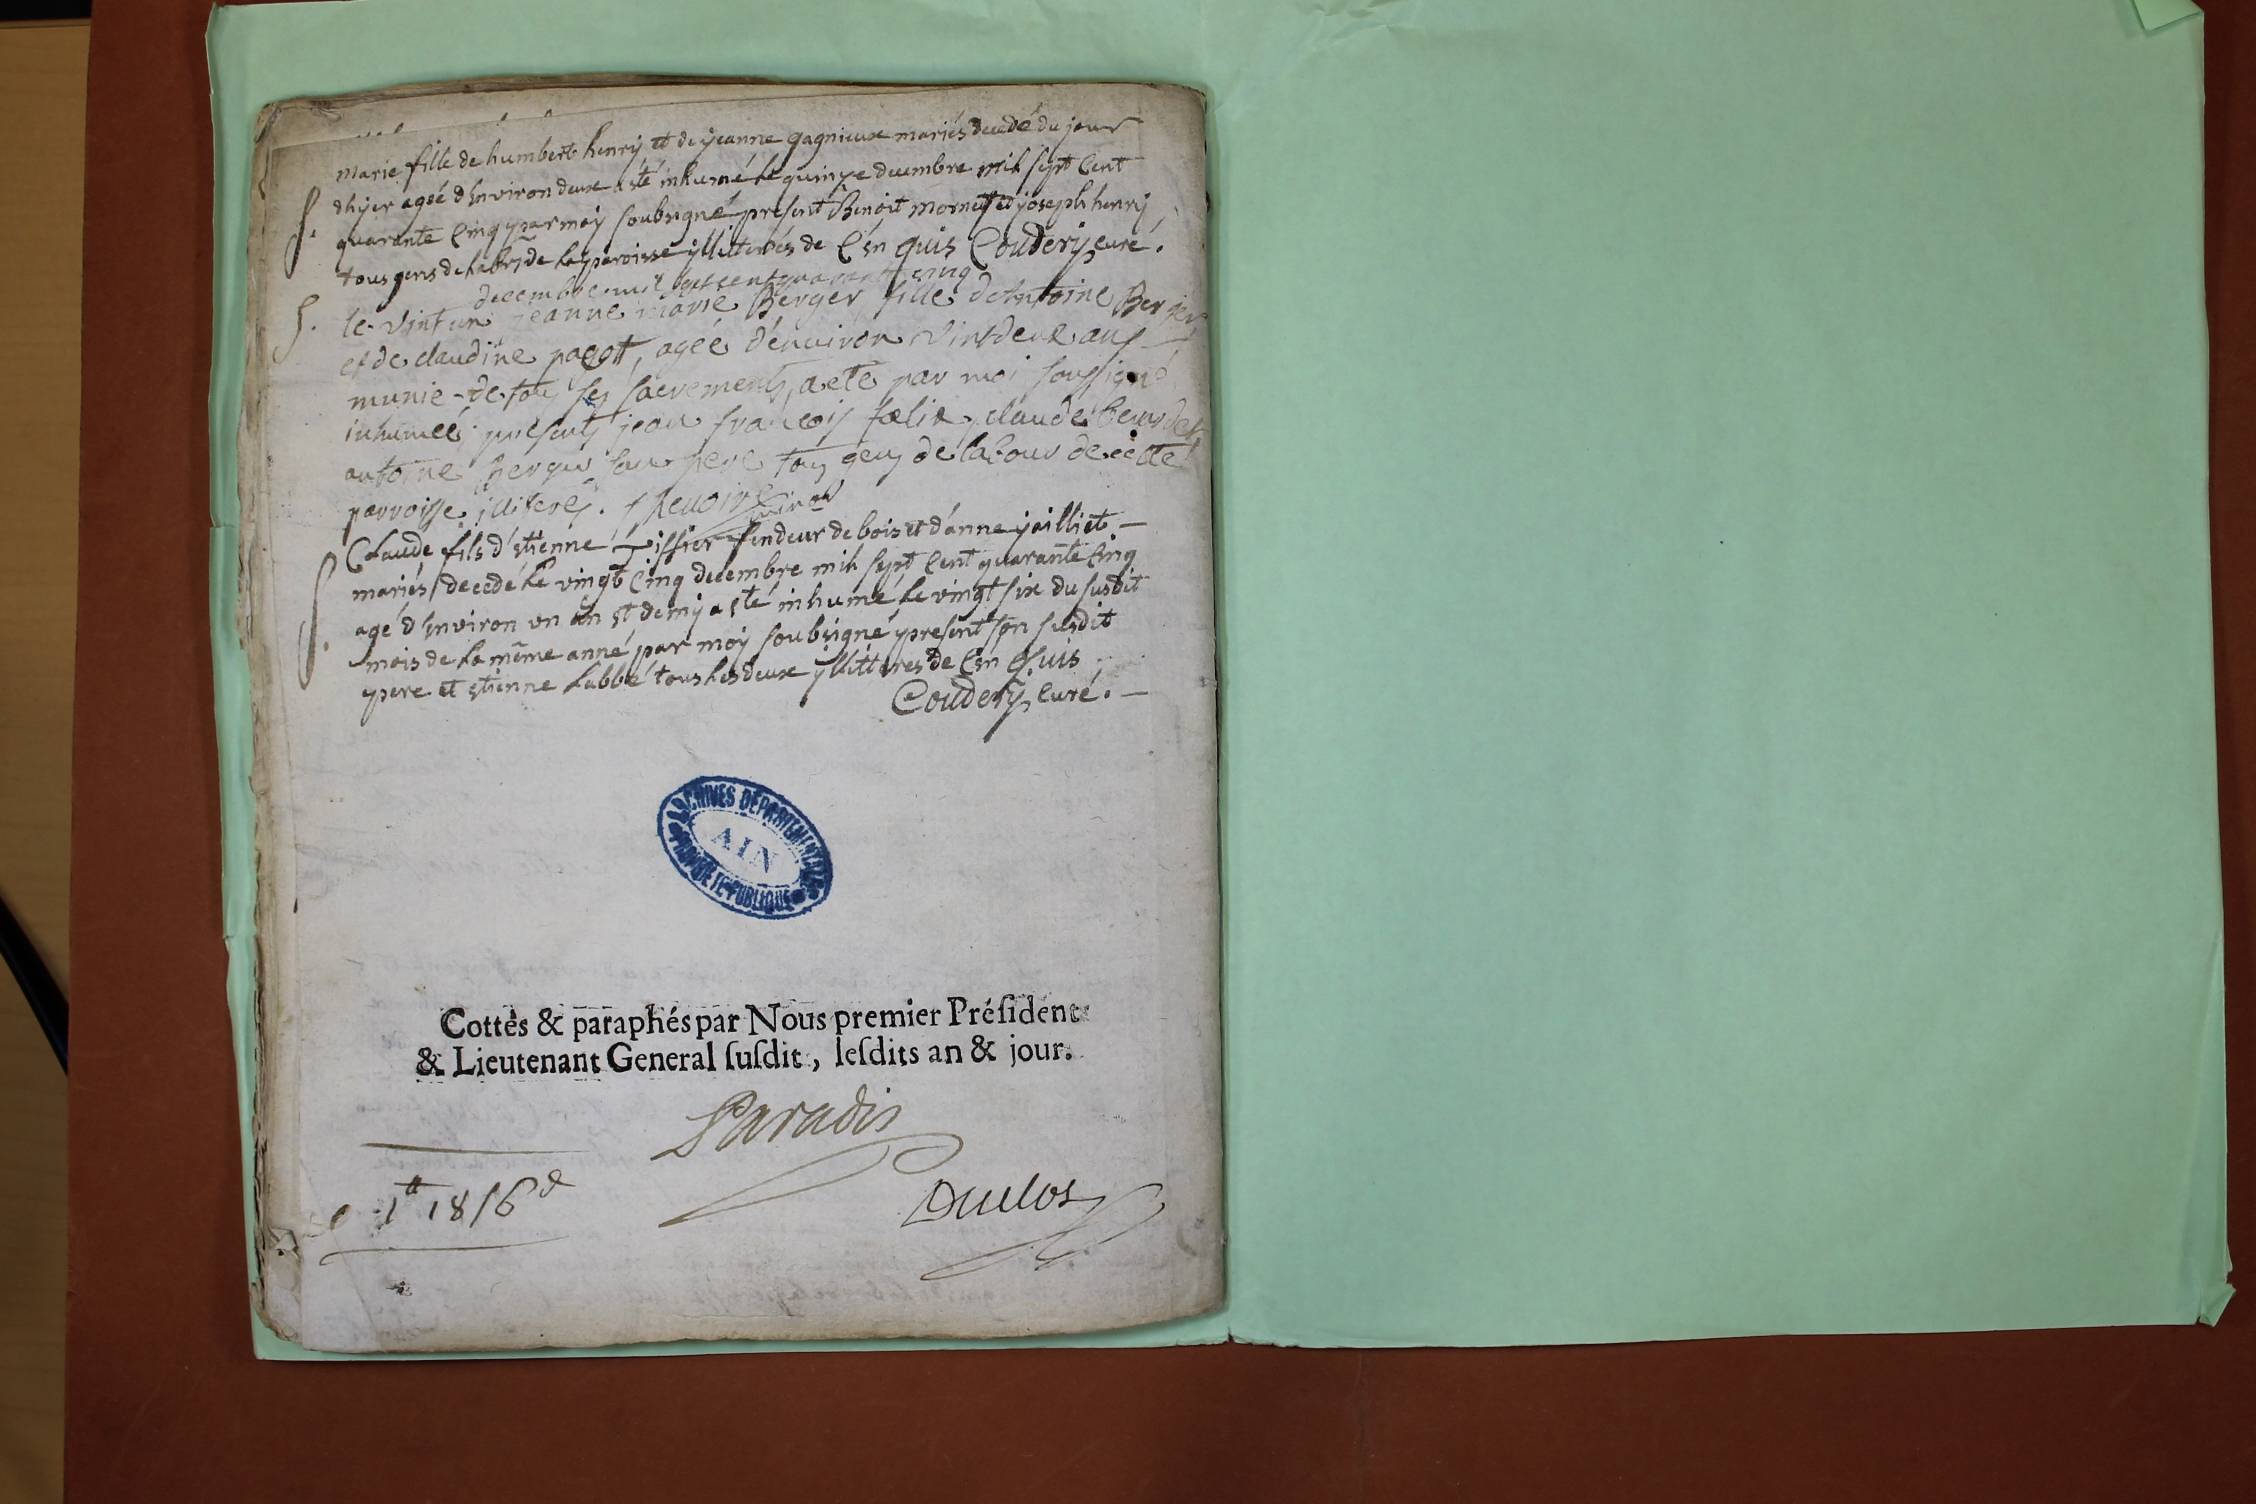 marie fille de humbert henry et de jeanne gagnieux mariés decedé du jour
S.
dhyer agéé d'Environ deux a été inhumé le quinze decembre mil sept Cent
quarante Cinq par moy soubsigné présent Benoit mornet et joseph henry
tous gens de labr de la paroisse yllitterés de C'en quis Coudery curé.
decembre mil sept cent quarante cinq
S. le vint un jeanne marie Berger fille d'Antoine Berger
et de claudine pagott, agéé d'énuiron vint deux ans
munie de tous ses sacrements, a eté par moi soussigné
inhumeé; presents jean françois fælix, claude
antoine berger son pere tous gens de labour de cette
parroisse illiterés.
Claude fils d'Etienne Tissier fendeur de bois et d'anne jailliet —
S.
mariés decedé le vingt Cinq decembre mil sept Cent quarante Cinq
agé d'Environ un an et demy a été inhumé le vingt six du susdit
mois de la même anné par moy soubsigné present son susdit
pere et etienne Labbé tous les deux yllitteres de Cen Quis
Coudery, curé. —
ARCHIVES DÉPARTEMENTALES
AIN
PROPRIÉTÉ PUBLIQUE
Cottés & paraphés par Nous premier Préſident
& Lieutenant General ſuſdit, leſdits an & jour.
Paradis
1tt 18 s 6d
Duclos